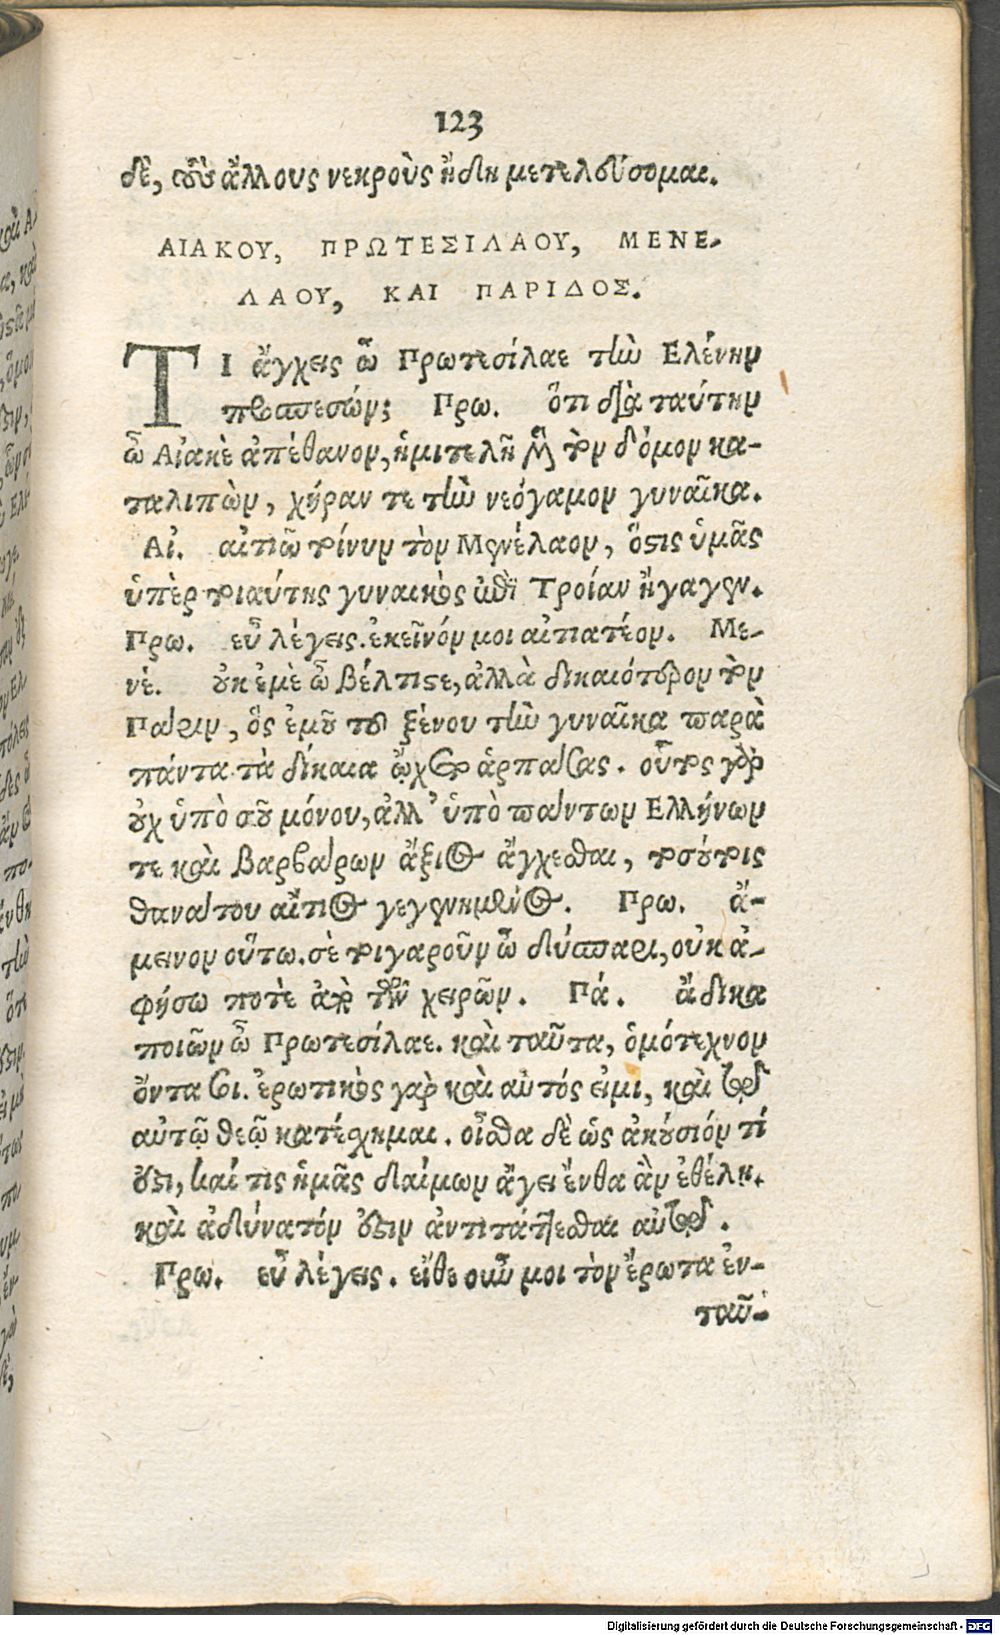 123
δὲ, τοὺς ἄλλους νεκροὺς ἤδη μετελεύσομαι.
ΑΙΑΚΟΥ, ΠΡΩΤΕΣΙΛΑΟΥ, ΜΕΝΕ-
ΛΑΟΥ, ΚΑΙ ΠΑΡΙΔΟΣ.
ΤΙ ἄγχεις ὦ Πρωτεσίλαε τὴν Ελένην
προσπεσών; Πρω. ὅτι διὰ ταύτην
ὦ Αἰακὲ ἀπέθανον, ἡμιτελῆ μὲν τὸν δόμον κα-
ταλιπὼν, χήραν τε τὴν νεόγαμον γυναῖκα.
Αἰ. αἰτιῶ τοίνυν τὸν Μενέλαον, ὅστις ὑμᾶς
ὑπὲρ τοιαύτης γυναικὸς ἐπὶ Τροίαν ἤγαγεν.
Πρω. εὖ λέγεις. ἐκεῖνόν μοι αἰτιατέον. Με-
νέ. οὐκ ἐμὲ ὦ βέλτιστε, ἀλλὰ δικαιότερον τὸν
Πάριν, ὃς ἐμοῦ τοῦ ξένου τὴν γυναῖκα παρὰ
πάντα τὰ δίκαια ᾤχετο ἁρπάσας. οὗτος γὰρ
οὐχ ὑπὸ σοῦ μόνου, ἀλλ' ὑπὸ πάντων Ελλήνων
τε καὶ βαρβάρων ἄξιος ἄγχεσθαι, τοσούτοις
θανάτου αἴτιος γεγενημένος. Πρω. ἄ-
μεινον οὕτω. σὲ τοιγαροῦν ὦ δύσπαρι, οὐκ ἀ-
φήσω ποτὲ ἀπὸ τῶν χειρῶν. Πά. ἄδικα
ποιῶν ὦ Πρωτεσίλαε. καὶ ταῦτα, ὁμότεχνον
ὄντα σοι. ἐρωτικὸς γὰρ καὶ αὐτός εἰμι, καὶ τῷ
αὐτῷ θεῷ κατέσχημαι. οἶσθα δὲ ὡς ἀκούσιόν τί
ἐστι, καί τις ἡμᾶς δαίμων ἄγει ἔνθα ἂν ἐθέλῃ.
καὶ ἀδύνατόν ἐστιν ἀντιτάττεσθαι αὐτῷ.
Πρω. εὖ λέγεις. εἴθε οὖν μοι τὸν ἔρωτα ἐν-
ταῦ-
Digitalisierung gefördert durch die Deutsche Forschungsgemeinschaft - DFG